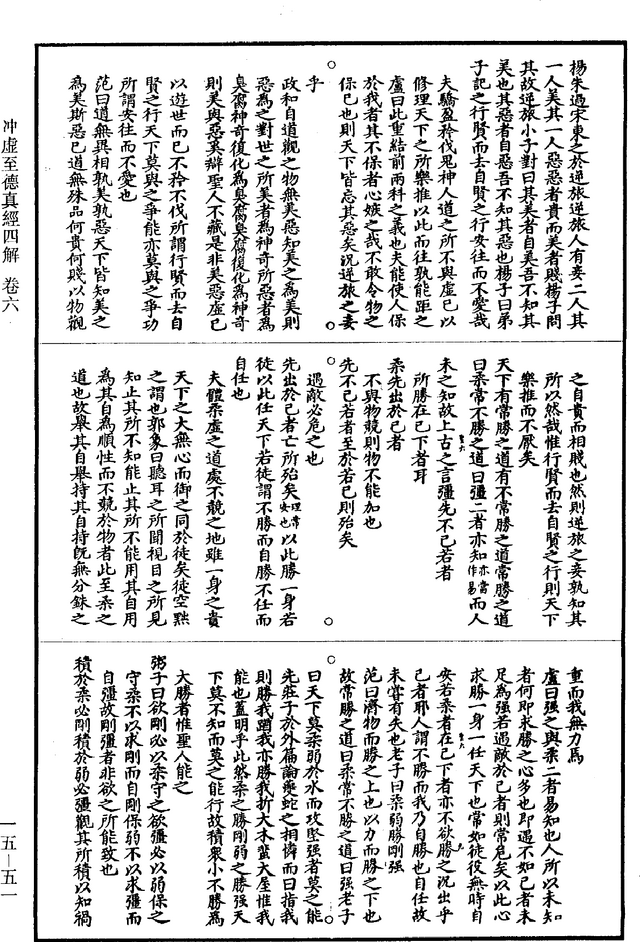 楊朱過宋東之於逆旅逆旅人有妾二人其
一人美其一人惡惡者貴而美者賤楊子問
其故逆旅小子對曰其美者自美吾不知其
美也其惡者自惡吾不知其惡也楊子曰弟
子記之行賢而去自賢之行安往而不愛哉
夫驕盈矜伐鬼神人道之所不與虛已以
修理天下之所樂推以此而往孰能距之
盧曰此重結前兩科之義也夫能使人保
於我者其不保者心嫉之哉不敢令物之
保巳也則天下皆忘其惡矣況逆旅之妾
乎
政和自道觀之物無美惡知美之為美則
惡為之對世之所美者為神奇所惡者為
臭腐神奇復化為臭腐臭腐復化為神奇
則美與惡奚辯聖人不藏是非美惡虛巳
以遊世而巳不矜不伐所謂行賢而去自
賢之行天下莫與之爭能亦莫與之爭功
所謂安往而不愛也
范曰道無異相孰美孰惡天下皆知美之
為美斯惡巳道無殊品何貴何賤以物觀
之自貴而相賤也然則逆旅之妾孰知其
所以然哉惟行賢而去自賢之行則天下
樂推而不厭矣
天下有常勝之道有不常勝之道常勝之道
曰柔常不勝之道曰彊二者亦知亦當作易而人
未之知故上古之言彊先不己若者
所勝在已下者耳
柔先出於已者
不與物競則物不能加也
先不己若者至於若已則殆矣
遇敵必危之也
先出於己者亡所殆矣理常安也以此勝一身若
徒以此任天下若徒謂不勝而自勝不任而
自任也
夫體柔虛之道處不競之地雖一身之貴
天下之大無心而御之同於徒矣徒空黙
之謂也郭象曰聽耳之所聞視目之所見
知止其所不知能止其所不能用其自用
為其自為順性而不競於物者此至柔之
道也故舉其自舉持其自持旣無分銖之
重而我無力焉
盧曰强之與柔二者易知也人所以未知
者何即求勝之心多也即遇不如己者未
足為强若遇敵於已者則常危矣以此心
求勝一身一任天下也常如徒役無時自
安若柔者在已下者亦不欲勝之況出乎
已者耶人謂不勝而我乃自勝也自任故
未嘗有失也老子曰柔弱勝剛强
范曰濟物而勝之上也以力而勝之下也
故常勝之道曰柔常不勝之道曰强老子
曰天下莫柔弱於水而攻堅强者莫之能
先莊子於外篇論夔蛇之相憐而曰指我
則勝我䠓我亦勝我折大木蜚大屋惟我
能也蓋明乎此然柔之勝剛弱之勝强天
下莫不知而莫之能行故積衆小不勝為
大勝者惟聖人能之
粥子曰欲剛必以柔守之欲彊必以弱保之
守柔不以求剛而自剛保弱不以求彊而
自彊故剛彊者非欲之所能致也
積於柔必剛積於弱必彊觀其所積以知禍
冲虛至德真經四解 卷六
一五－五一